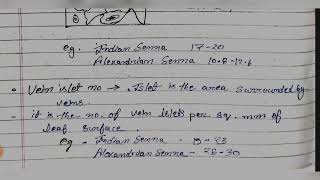 eg. Indian Senna 17-20
Alexandrian Senna 10.8-12.6
• Vein islet no → Islet is the area surrounded by
veins.
- it is the no. of vein islets per sq. mm of
leaf surface.
eg - Indian Senna - 19-23
Alexandrian Senna - 25-30